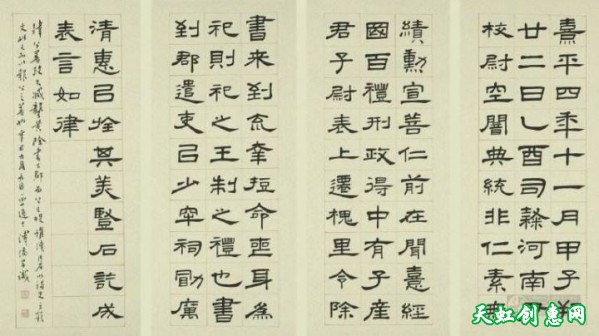 熹平四年十一月甲子朔
廿二日乙酉司隸河南尹
校尉空闇典統非仁素無
績勳宣善仁前在聞憙經
國百禮刑政得中有子產
君子尉表上遷槐里令除
書未到奄短命喪身為
祀則祀之王制之禮也書
到郡遣吏以少牢祠勖厲
清惠以旌其美豎石訖成
表言如律
天虹创惠网